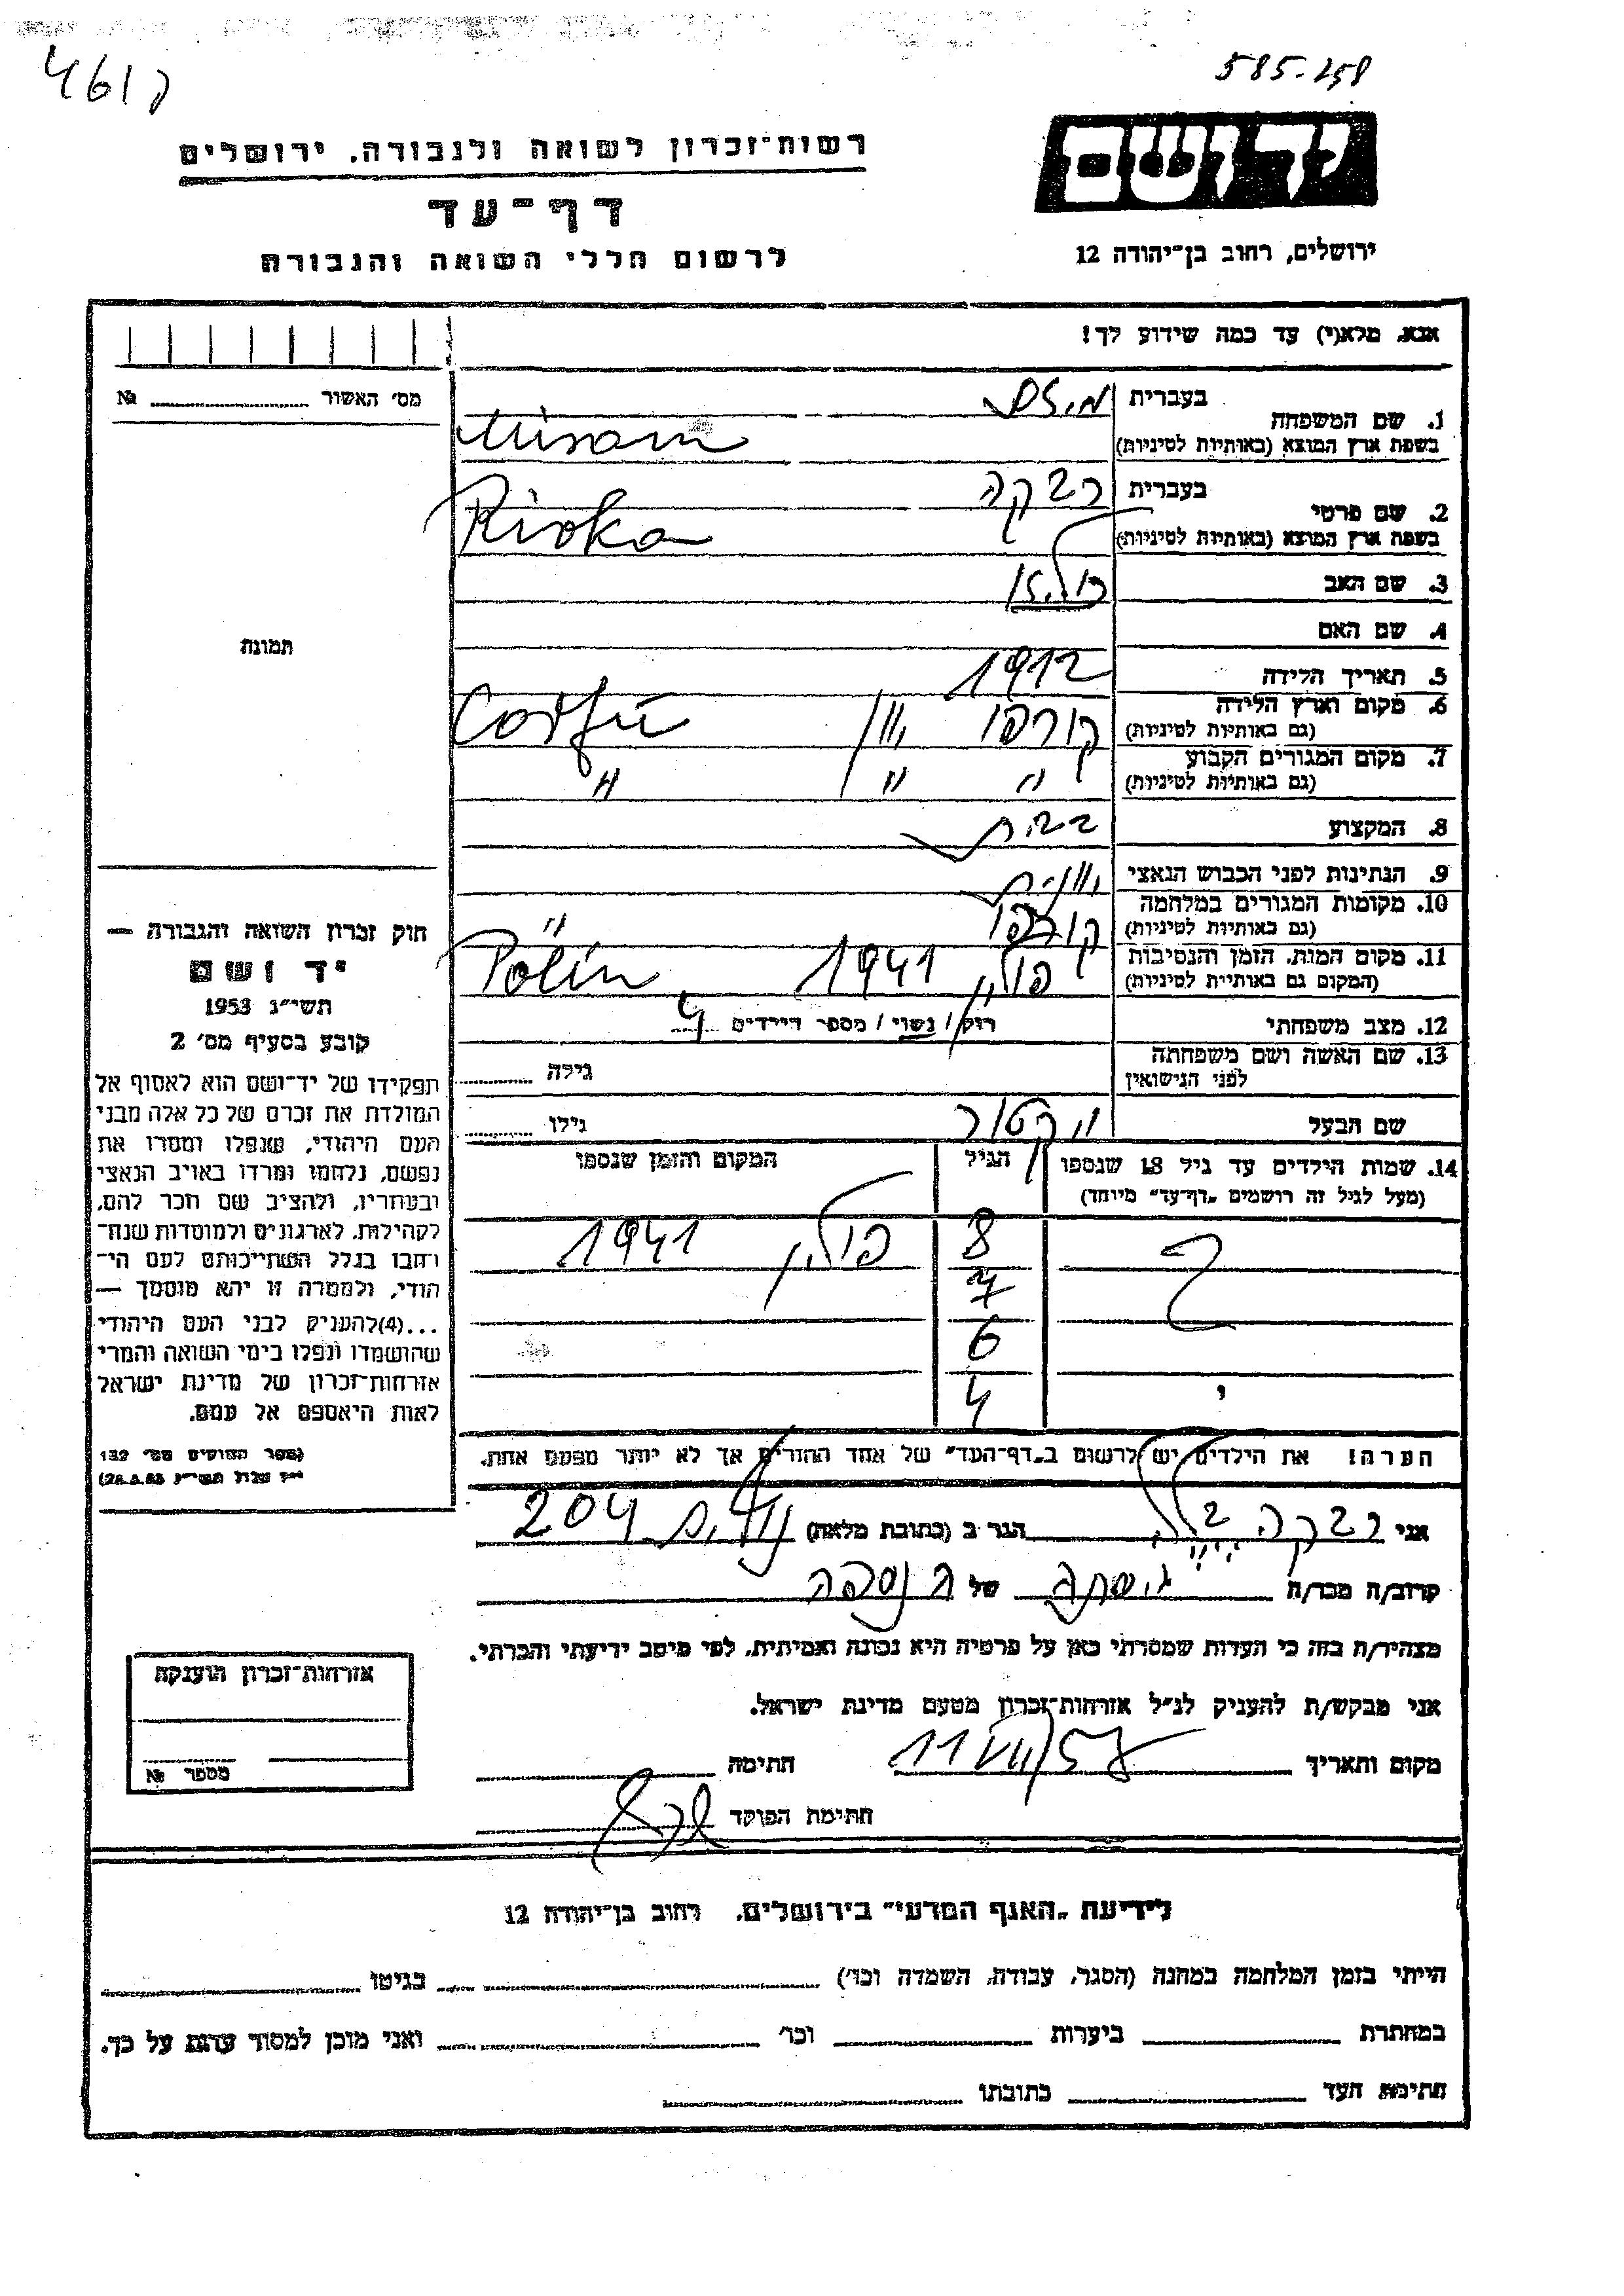 461ק
585-258
רשות־זכרון לשואה ולגבורה. ירושלים
דף־עד
לרשום חללי השואה והגבורה
יד ושם
ירושלים, רחוב בן־יהודה 12
אנא, מלא(י) עד כמה שידוע לך!
מס׳ האשור № 
1. שם המשפחה
בעברית
בשפת ארץ המוצא (באותיות לטיניות)
2. שם פרטי
בעברית רבקה
בשפת ארץ המוצא (באותיות לטיניות) Rivka
3. שם האב
4. שם האם
5. תאריך הלידה 1912
6. מקום וארץ הלידה
(גם באותיות לטיניות) קורפו יוון Corfu
7. מקום המגורים הקבוע
(גם באותיות לטיניות) " " "
8. המקצוע
9. הנתינות לפני הכבוש הנאצי יוונית
10. מקומות המגורים במלחמה
(גם באותיות לטיניות) קורפו "
11. מקום המות, הזמן והנסיבות
(המקום גם באותיות לטיניות) פולין 1941 Polin
12. מצב משפחתי רווק / נשוי / מספר הילדים 4
13. שם האשה ושם משפחתה
לפני הנישואין
גילה
שם הבעל ויקטור גילו
14. שמות הילדים עד גיל 18 שנספו
(מעל לגיל זה רושמים „דף־עד״ מיוחד)
הגיל
המקום והזמן שנספו
? 8 פולין 1941
7
6
4
הערה! את הילדים יש לרשום ב„דף־העד״ של אחד ההורים אך לא יותר מפעם אחת.
תמונה
חוק זכרון השואה והגבורה —
יד ושם
תשי״ג 1953
קובע בסעיף מס׳ 2
תפקידו של יד־ושם הוא לאסוף אל
המולדת את זכרם של כל אלה מבני
העם היהודי, שנפלו ומסרו את
נפשם, נלחמו ומרדו באויב הנאצי
ובעוזריו, ולהציב שם וזכר להם,
לקהילות, לארגונים ולמוסדות שנח־
רבו בגלל השתייכותם לעם הי־
הודי, ולמטרה זו יהא מוסמך —
...(4)להעניק לבני העם היהודי
שהושמדו ונפלו בימי השואה והמרי
אזרחות־זכרון של מדינת ישראל
לאות היאספם אל עמם.
(ספר החוקים מס׳ 132
אני רבקה הגר ב (כתובת מלאה) 204
קרוב/ה מכר/ה גיסתה של הנספה
מצהיר/ה בזה כי העדות שמסרתי כאן על פרטיה היא נכונה ואמיתית, לפי מיטב ידיעתי והכרתי.
אני מבקש/ת להעניק לנ״ל אזרחות־זכרון מטעם מדינת ישראל.
מקום ותאריך חתימה
חתימת הפוקד
אזרחות־זכרון הוענקה
מספר №
לידיעת „האגף המדעי״ בירושלים, רחוב בן־יהודה 12
הייתי בזמן המלחמה במחנה (הסגר, עבודה, השמדה וכו׳) בגיטו
במחתרת ביערות וכו׳ ואני מוכן למסור עדות על כך.
חתימת העד כתובתו